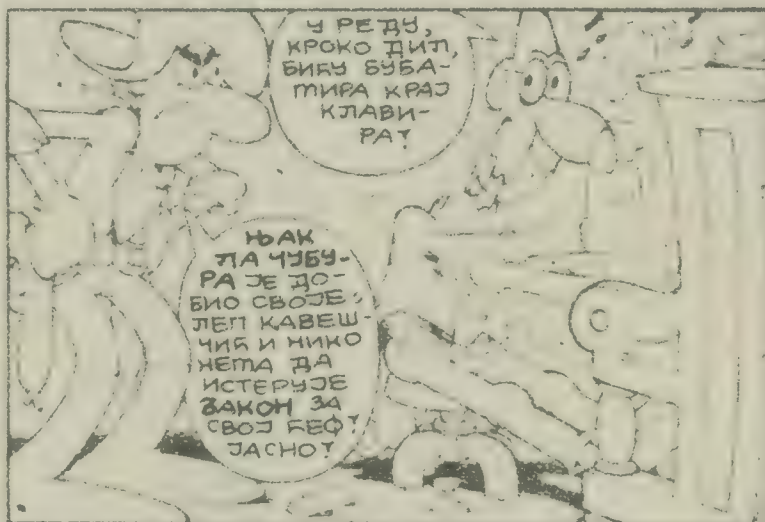 У РЕДУ,
КРОКО ДИЛ,
БИЋУ БУБА-
ТИРА КРАЈ
КЛАВИ-
РА?
ЊАК
ЛА ЧУБУ-
РА ЈЕ ДО-
БИО СВОЈЕ,
ЛЕП КАВЕШ-
ЧИЋ И НИКО
НЕМА ДА
ИСТЕРУЈЕ
ЗАКОН ЗА
СВОЈ ЋЕФ!
ЈАСНО?